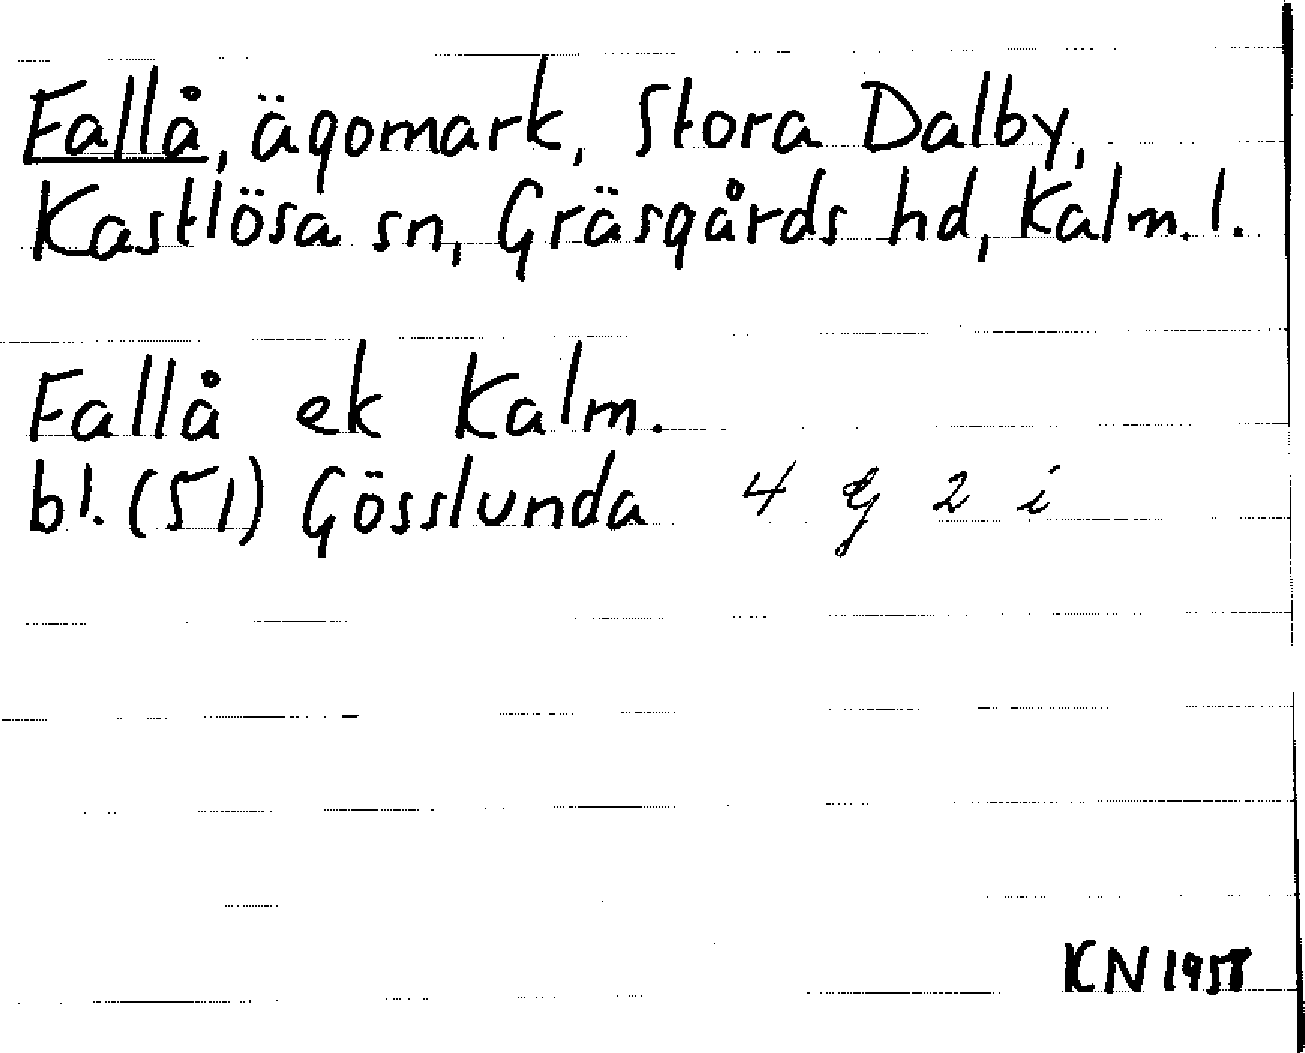 Fallå, ägomark, Stora Dalby,
Kastlösa sn, Gräsgårds hd, Kalm. l.
Fallå ek Kalm.
bl. (51) Gösslunda 4 G 2 i
KN 1958